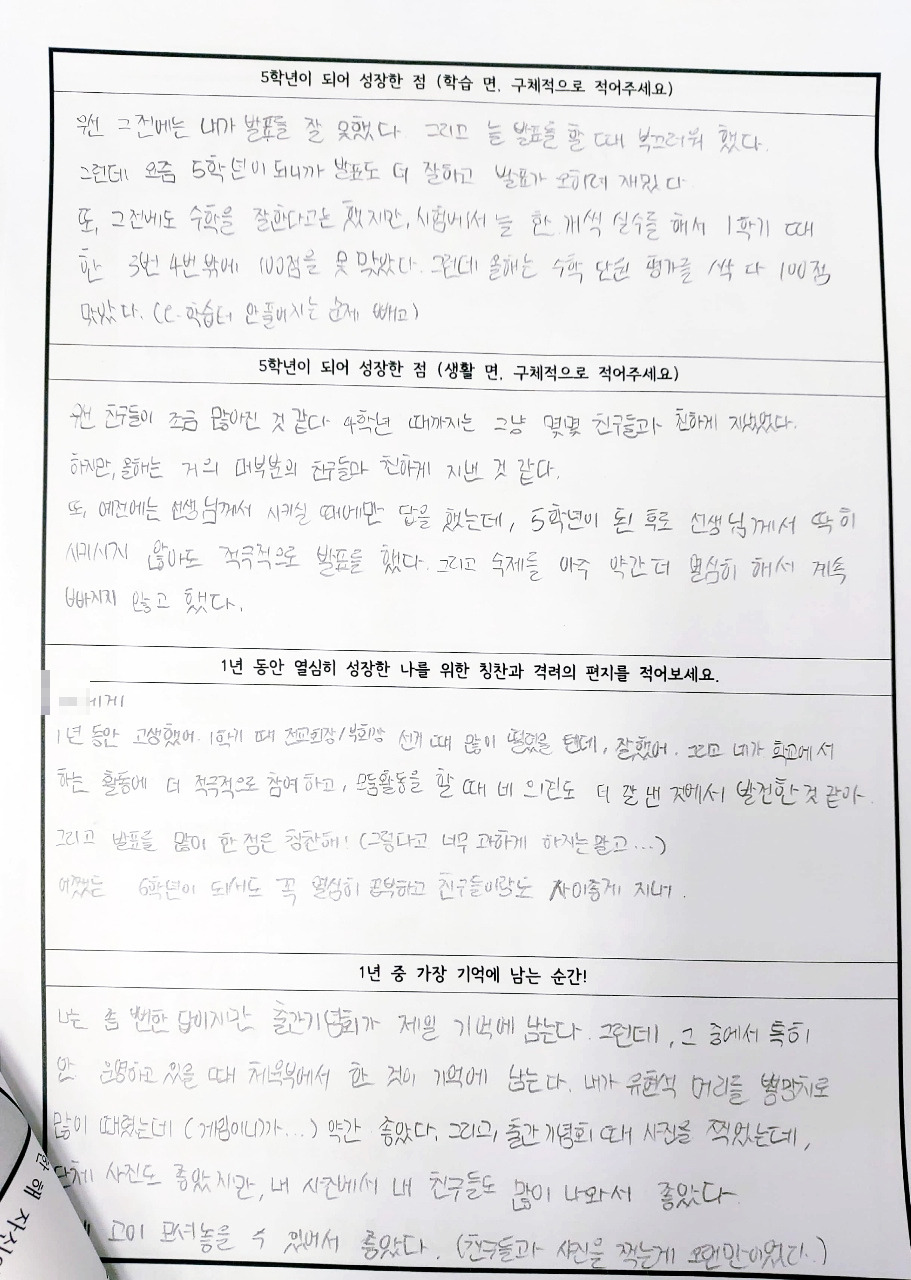 5학년이 되어 성장한 점 (학습 면, 구체적으로 적어주세요)
우선 그전에는 내가 발표를 잘 못했다. 그리고 늘 발표를 할 때 부끄러워 했다.
그런데 요즘 5학년이 되니까 발표도 더 잘하고 발표가 오히려 재밌다.
또, 그전에도 수학을 잘한다고는 했지만, 시험에서 늘 한 개씩 실수를 해서 1학기 때
한 3번 4번 밖에 100점을 못 맞았다. 그런데 올해는 수학 단원 평가를 싹 다 100점
맞았다. (e-학습터 안풀어지는 문제 빼고)
5학년이 되어 성장한 점 (생활 면, 구체적으로 적어주세요)
우선 친구들이 조금 많아진 것 같다. 4학년 때까지는 그냥 몇몇 친구들과 친하게 지냈었다.
하지만, 올해는 거의 대부분의 친구들과 친하게 지낸 것 같다.
또, 예전에는 선생님께서 시키실 때에만 답을 했는데, 5학년이 된 후로 선생님께서 딱히
시키시지 않아도 적극적으로 발표를 했다. 그리고 숙제를 아주 약간 더 열심히 해서 계속
빠지지 않고 했다.
1년 동안 열심히 성장한 나를 위한 칭찬과 격려의 편지를 적어보세요.
에게
1년 동안 고생했어. 1학기 때 전교회장/부회장 선거 때 많이 떨렸을 텐데, 잘했어. 그리고 네가 학교에서
하는 활동에 더 적극적으로 참여하고, 모둠활동을 할 때 네 의견도 더 잘 낸 것에서 발전한 것 같아.
그리고 발표를 많이 한 점은 칭찬해! (그렇다고 너무 과하게 하지는 말고...)
어쨌든 6학년이 되서도 꼭 열심히 공부하고 친구들이랑도 사이좋게 지내.
1년 중 가장 기억에 남는 순간!
나는 좀 뻔한 답이지만 출간기념회가 제일 기억에 남는다. 그런데, 그 중에서 특히
운영하고 있을 때 체육부에서 한 것이 기억에 남는다. 내가 유현석 머리를 뿅망치로
많이 때렸는데 (게임이니까...) 약간 좋았다. 그리고, 출간기념회 때 사진을 찍었는데,
단체 사진도 좋았지만, 내 사진에서 내 친구들도 많이 나와서 좋았다.
고이 모셔놓을 수 있어서 좋았다. (친구들과 사진을 찍는게 오랜만이었다..)
한 해